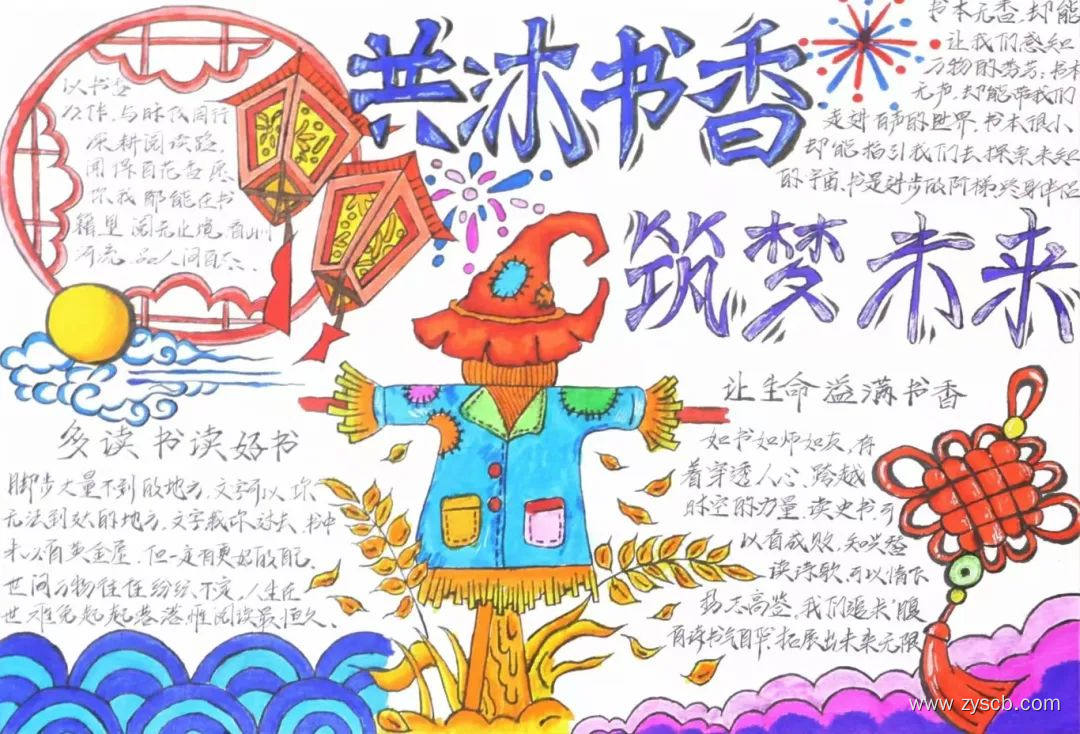 共沐书香
筑梦未来
以书香
作伴,与时代同行
深耕阅读路,
闻得百花香愿
你我都能在书
籍里阅无止境,看山川
河流,品人间百态.
书本无香,却能
让我们感知
万物的芬芳;书本
无声,却能带我们
走进有声的世界,书本很小,
却能指引我们去探索未知
的宇宙,书是进步的阶梯终身伴侣
多读书读好书
脚步丈量不到的地方,文字可以,你
无法到达的地方,文字载你过去,书中
未必有黄金屋,但一定有更好的自己.
世间万物往往纷纷不定,人生在
世难免起起落落惟阅读最恒久.
让生命溢满书香
如书如师如友,有
着穿透人心,跨越
时空的力量,读史书,可
以看成败,知兴替
读诗歌,可以情飞
扬志高
,我们追求腹
有诗书气自华,拓展出未来无限
www.zyscb.com